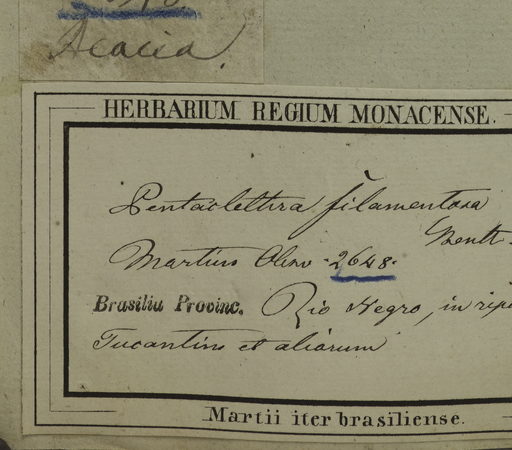 Acacia.
HERBARIUM REGIUM MONACENSE.
Pentaclethra filamentosa
Benth.
Martius Obsv. 2648.
Brasilia Provinc. Rio Negro, in rip
Tucantins et aliorum
Martii iter brasiliense.